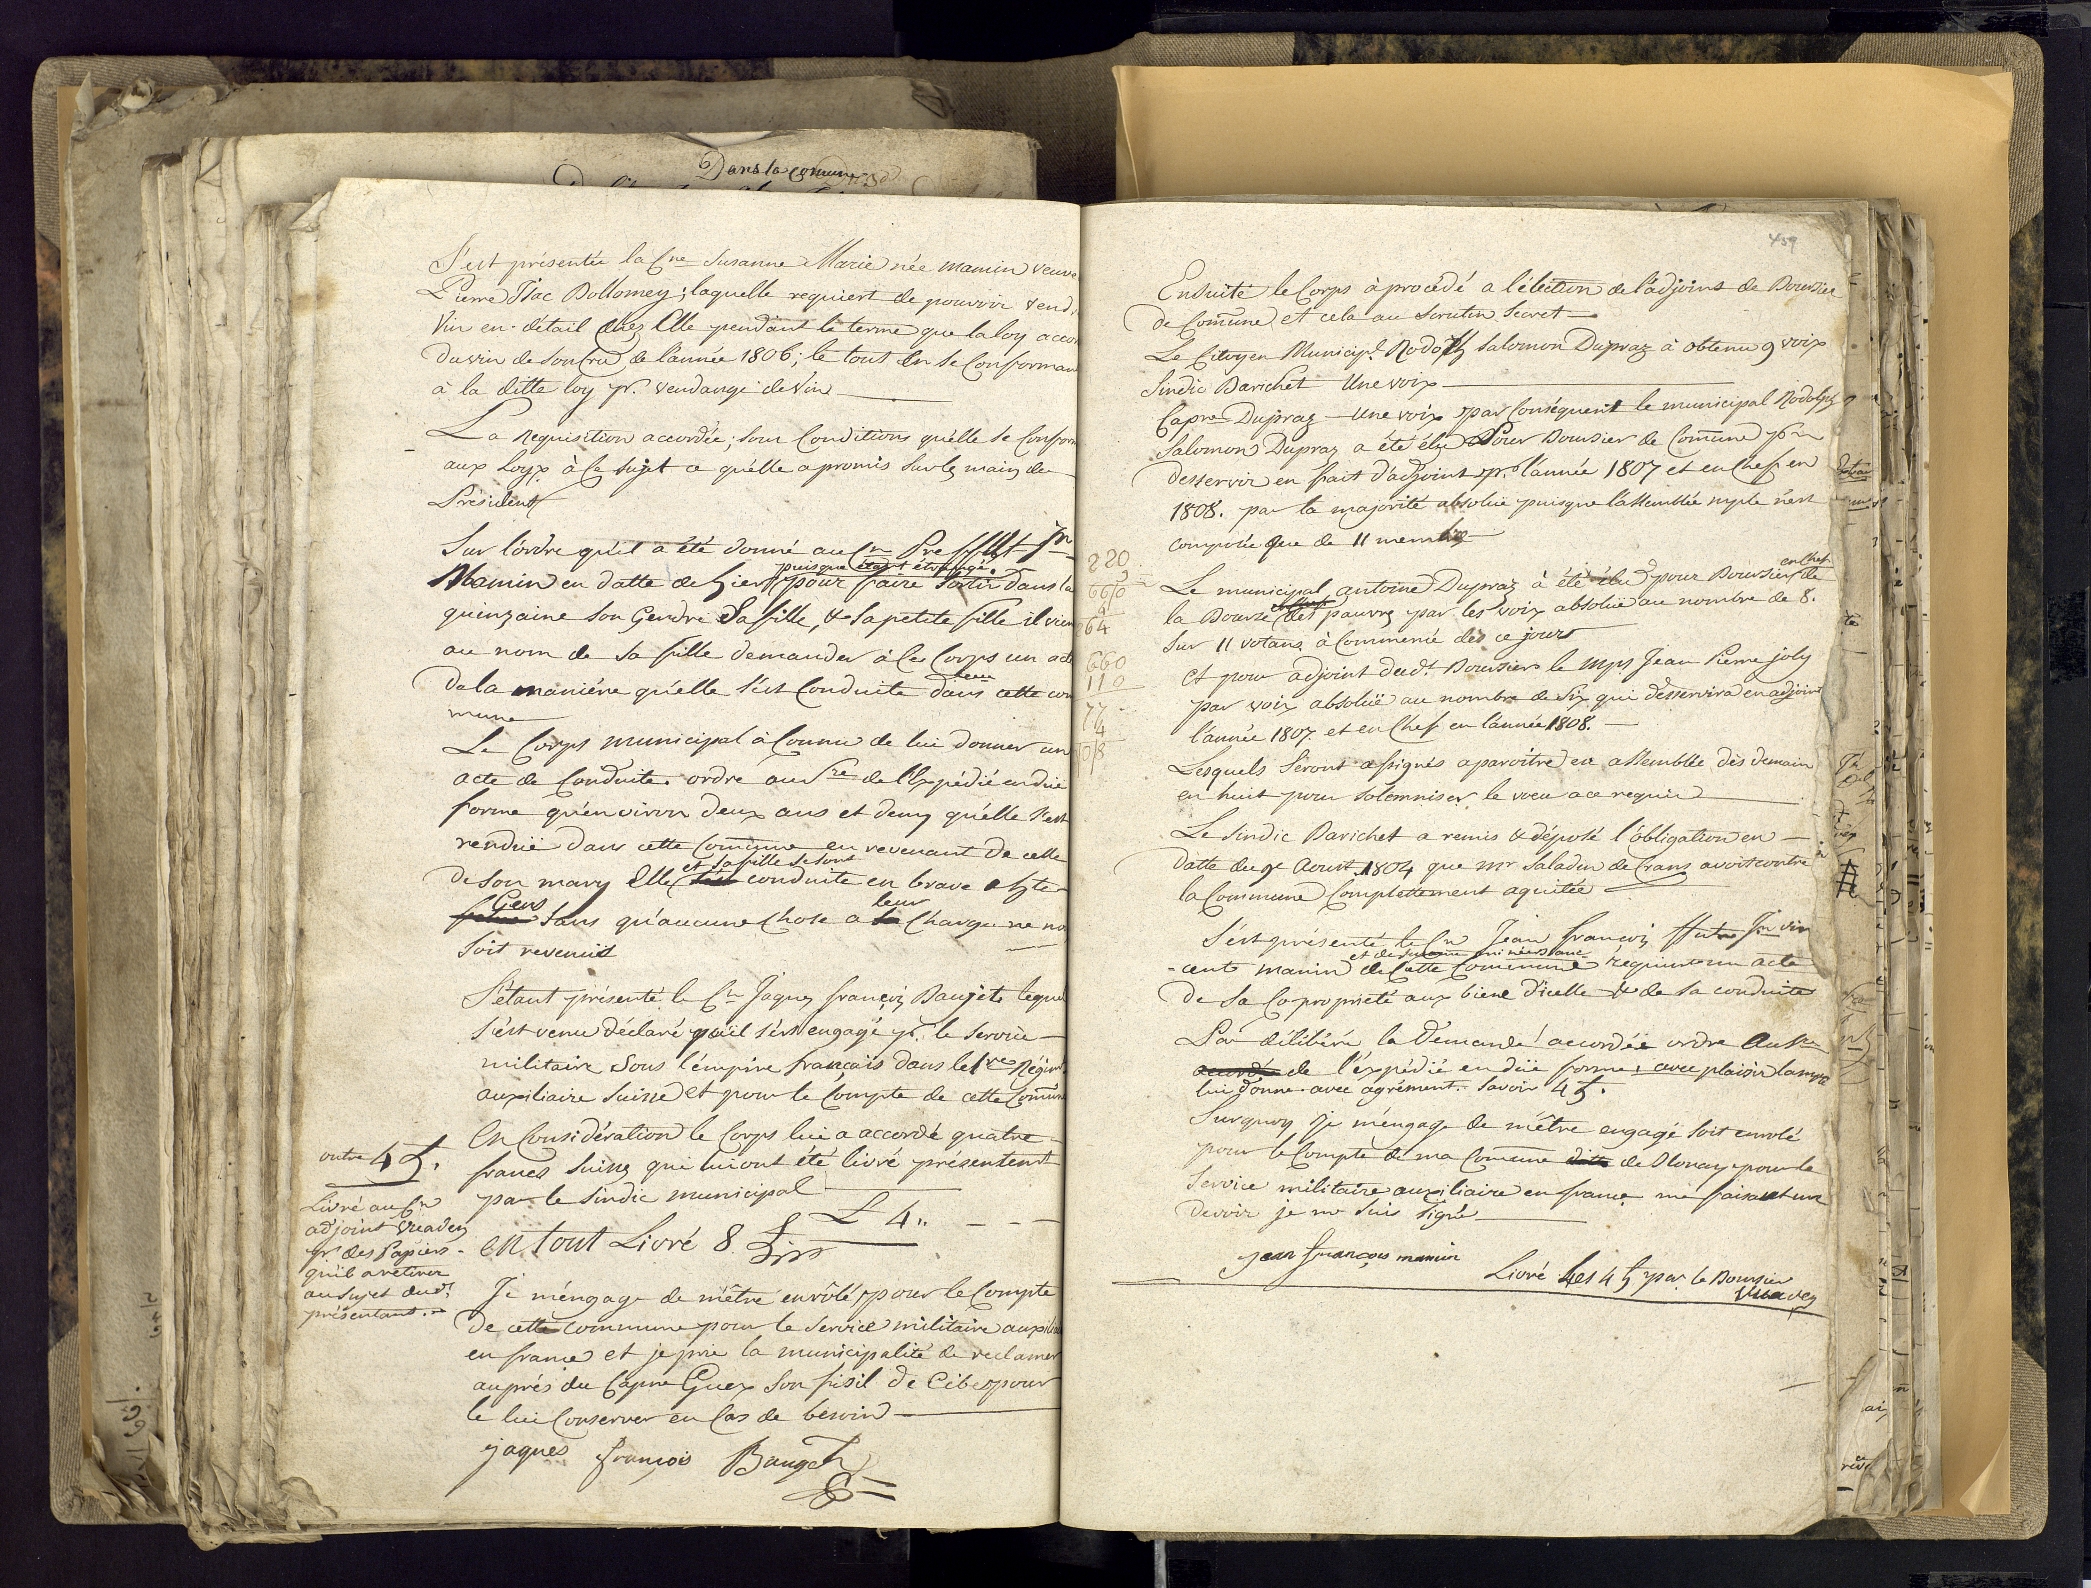 Dans la comune
S'est présentée la Cne Susanne Marie née mamin veuve
Pierre Isac Dollomey; laquelle requiert de pouvoir vend
Vin en détail chez Elle pendant le terme que la loy accor
du vin de son Cru de l'année 1806; le tout en se Conforman
à la ditte loy pr. vendange de Vin
La Requisition accordée, sous Conditions quelle se Conform
aux Loyx à ce sujet ce quelle a promis sur les mains du
Président
Sur l'ordre qu'il a été donné au Cn
puisque étant étrangé.
Mamin en datte de hier pour faire sortir dans la
quinzaine son Gendre Sa fille, & sa petite fille il vien
au nom de sa fille demander à ce Corps un acte
De la maniére qu'elle s'est Conduite dans cette com
mune
Le Corps municipal à Connu de lui donner un
acte de Conduite. ordre au Sre de l'Expédié en düe
forme qu'environ deux ans et demy quelle s'est
rendüe dans cette Comune en revenant de celle
et sa fille se sont
De son mary Elle conduite en brave
Gens leur
sans qu'aucune Chose a Charge ne no
soit revenüe
S'étant présenté le Cn Jaques françois Baugets lequel
s'est venu déclaré qu'il s'est engagé pr. le service
militaire sous l'empire français dans le 1re Régim
auxiliaire Suisse et pour le Compte de cette Comun
En Considération le Corps lui a accordé quatre
francs Suisses qui lui ont été livré présentemt
par le Sindic municipal
L 4..
en tout Livré 8
outre 4
Livré au Cn
adjoint Vuadey
pr des Papiers
quil a retirer
au Sujet dudt
présentant.
Je m'éngage de m'être enrôlé pour le Compte
De cette commune pour le service militaire auxili
en france et je prie la municipalité de reclamer
auprès du Capne Guex son fisil de Cible pour
le lui Conserver en Cas de besoin
jaques françois Bauget
220
660
64
660
110
77
4
459
Ensuite le Corps à procédé a l'élection de l'adjoint de Boursier
de Comune et cela au Scrutin Secret
Le Citoyen Municipl Rodolph Salomon Dupraz à obtenu 9 voix
Sindic Darichet Une voix
Capne Dupraz Une voix par Conséquent le municipal Rodolph
Salomon Dupraz a été élu Pour Boursier de Comune pr
desservir en fait d'adjoint pr. l'année 1807 et en Chef en
1808. par la majorité absolüe puisque l'assemblée mple n'est
composée que de 11 membres
en Chef
Le municipal antoine Dupraz à été élu pour Boursier de
la Bourse des pauvres par les voix absolüe au nombre de 8.
sur 11 votans à Commencé dès ce jour
Et pour adjoint dudt Boursier le mpl Jean Pierre joly
par voix absolüe au nombre de Six qui desservira en adjoint
l'année 1807 et en Chef en l'année 1808.
Lesquels Séront assignés a paroitre en assemblée dès demain
en huit pour solemniser le voeu a ce requis
Le Sindic Darichet a remis & déposé l'obligation en
Datte du 9e Aoust 1804 que mr Saladin de Crans avoit contre
la Commune Complettement aquitée
S'est présenté le Cn Jean françois ffeu Jn vin
-cent mamin de Cette Commune requiert un acte
de Sa Coproprieté aux biens d'icelle & de sa conduite
L'on délibéré la Démande accordée ordre au Sre
de l'éxpédié en düe forme; avec plaisir
lui donne avec agrément. Savoir 4
Surquoy Je m'éngage de m'être engagé soit enrolé
pour le Compte de ma Comune de Blonay pour le
Service militaire auxiliaire en france me faisant un
devoir je me suis signé
jean françois mamin
Livré les 4 par le Boursier
Vuadey